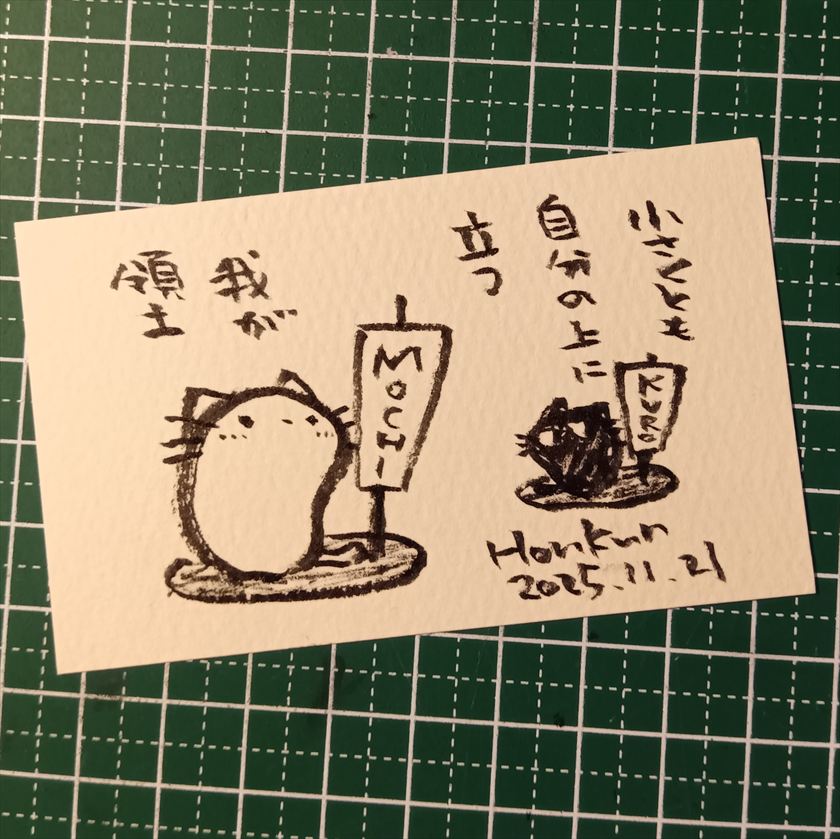 小さくとも
自分の上に
立つ
我が
領土
MOCHI
KURO
Honkun
2025.11.21